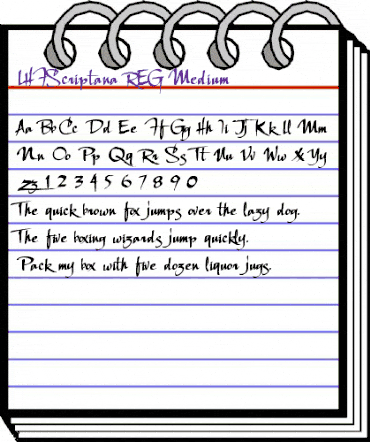 LHFScriptana REG Medium
Aa Bb Cc Dd Ee Ff Gg Hh Ii Jj Kk Ll Mm
Nn Oo Pp Qq Rr Ss Tt Uu Vv Ww Xx Yy
Zz 1 2 3 4 5 6 7 8 9 0
The quick brown fox jumps over the lazy dog.
The five boxing wizards jump quickly.
Pack my box with five dozen liquor jugs.